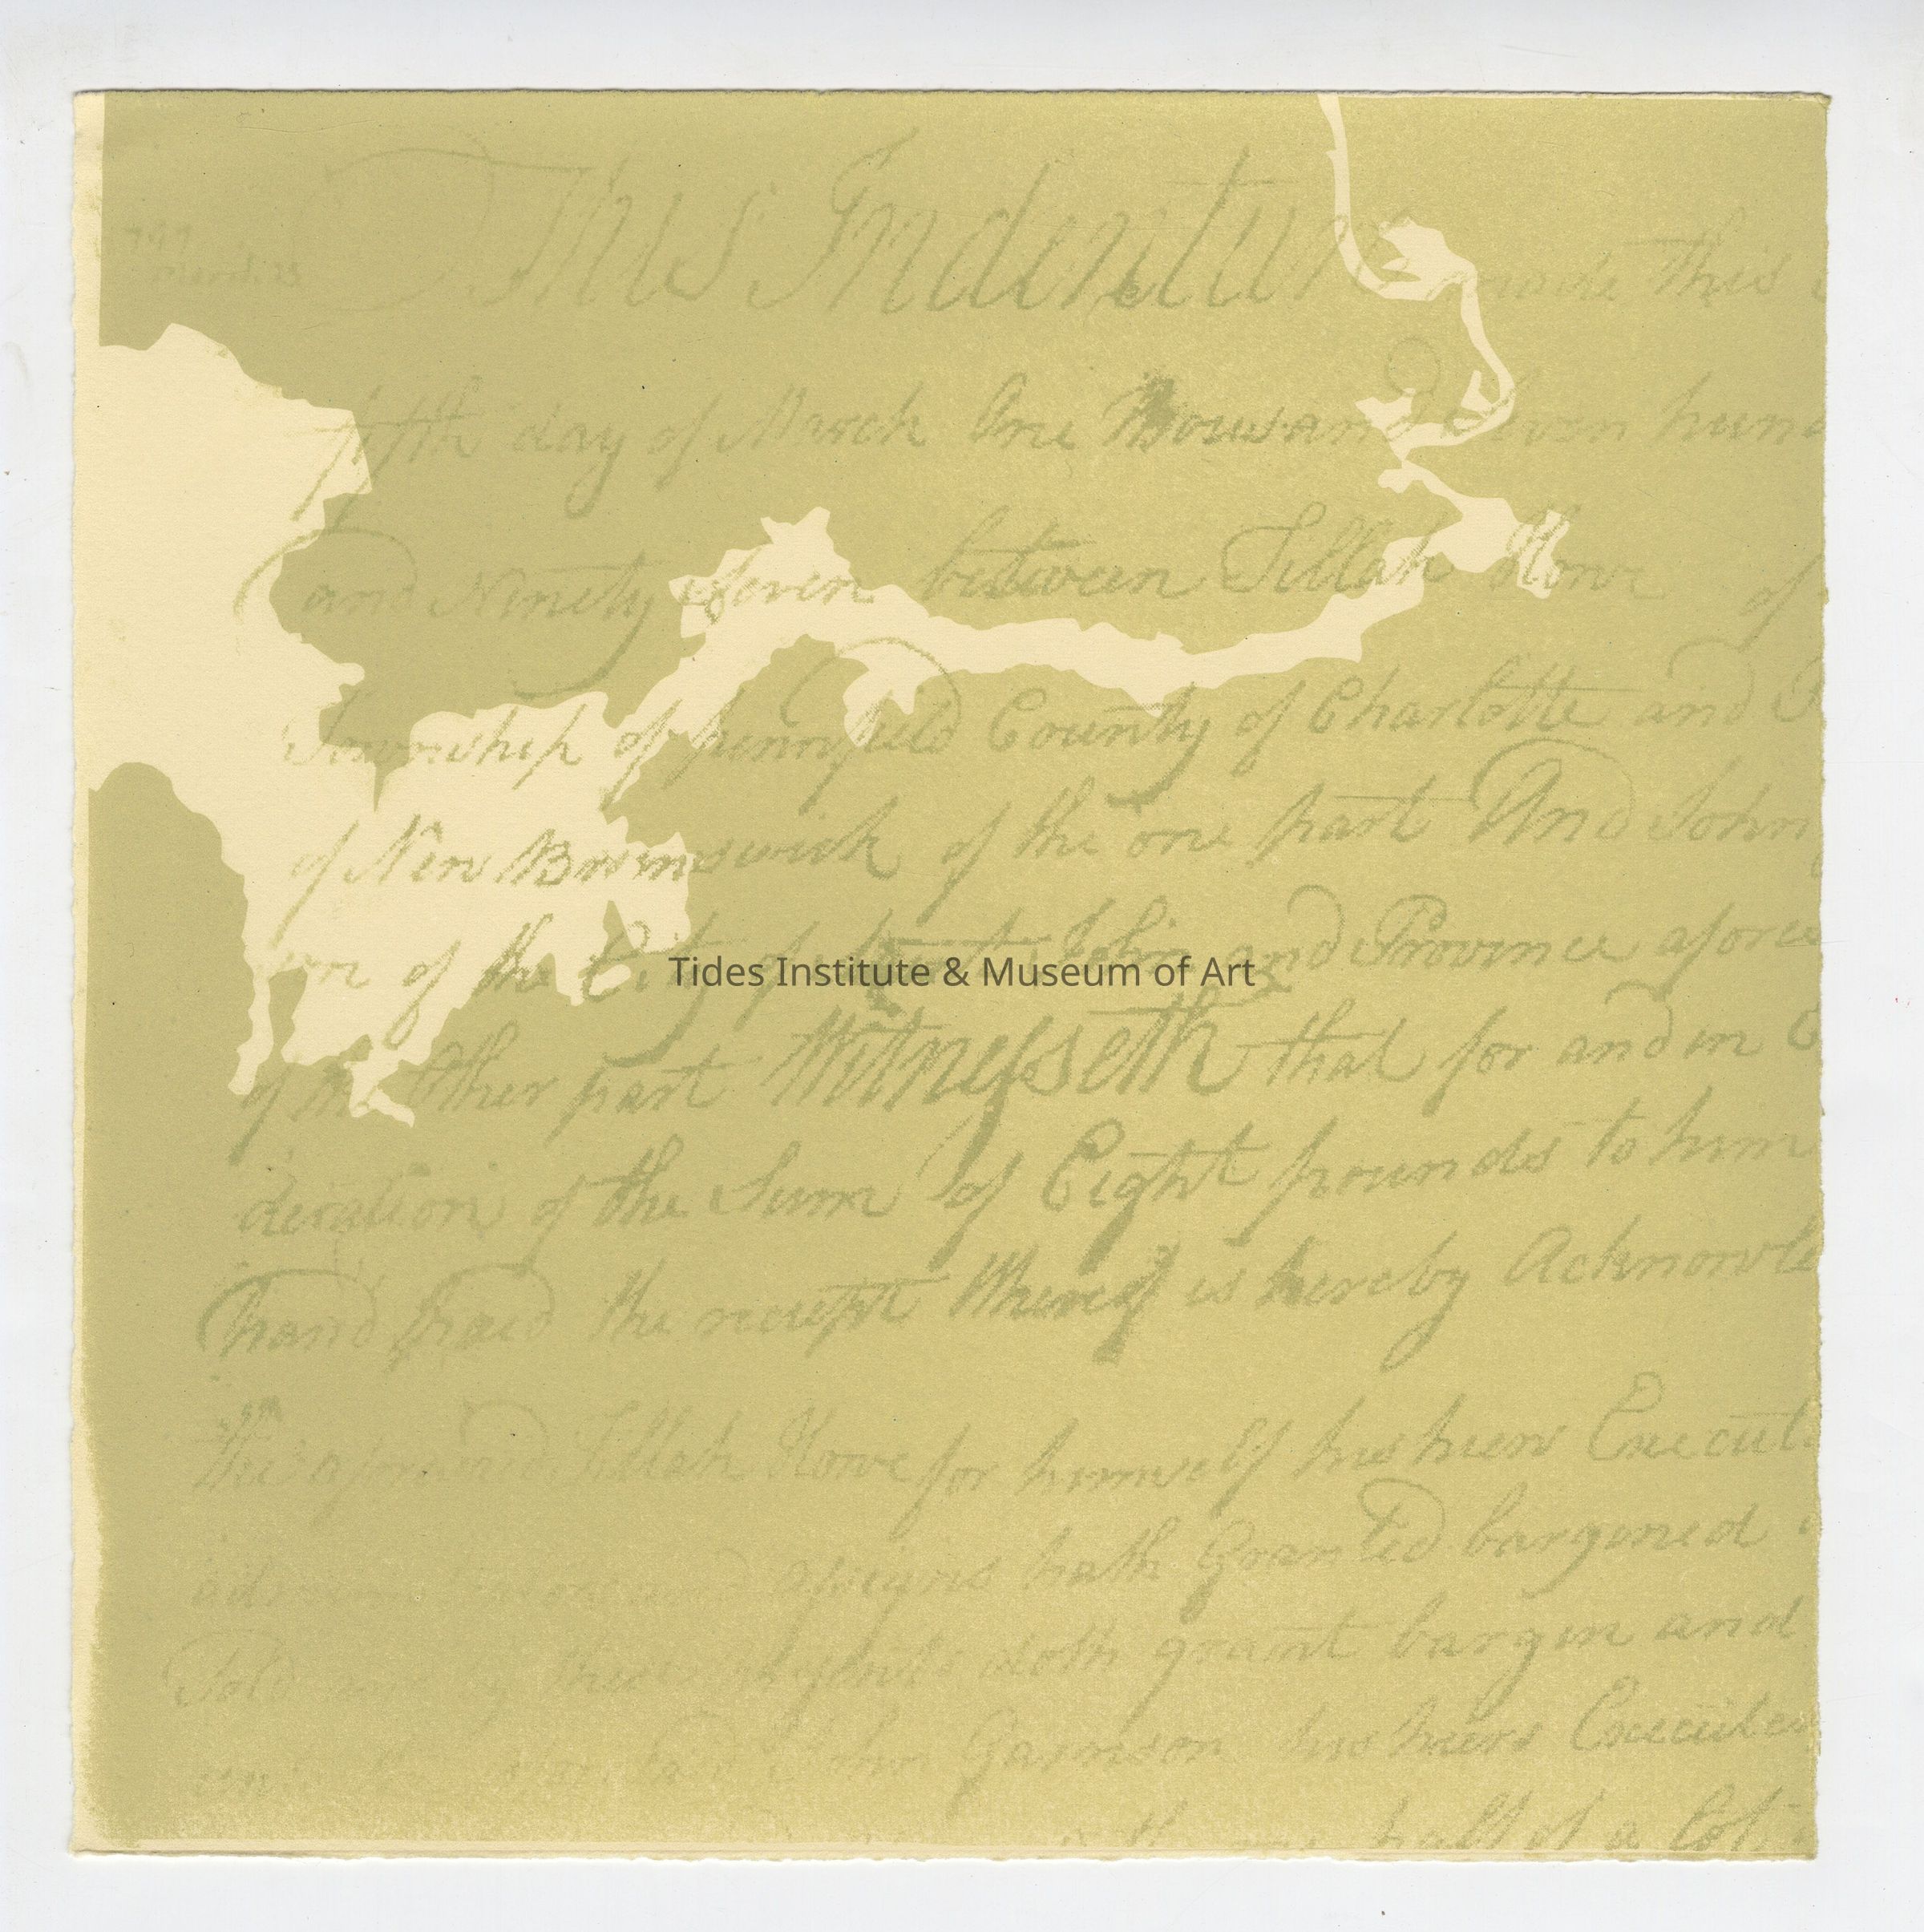 This Indenture made this
fifth day of March One Thousand Seven hund
and Ninety Seven between Tillah Howe of
Township of pennfield County of Charlotte and P
of New Brunswick of the one part And John
of the City of Saint John and Province afores
of the Other part Witnesseth that for and in C
deration of the Sum of Eight pounds to him
hand paid the receipt Whereof is hereby Acknowle
the aforesaid Tillah Howe for himself his heirs Execut
assigns hath Granted bargined
Sold and by these doth grant bargin and
Said John Garrison his heirs Executer
half of a Lot
Tides Institute & Museum of Art